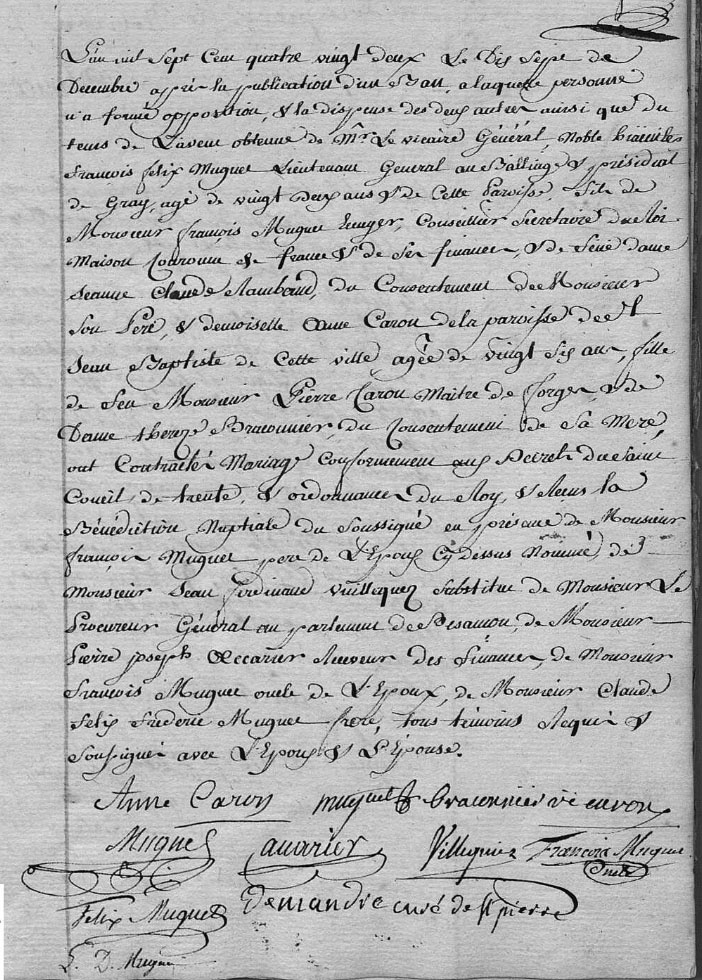 L'an mil Sept Cent quatre vingt deux Le Dix Sept de
Decembre après la publication d'un Ban, a laquelle personne
n'a formé opposition, & la dispense des deux autres ainsi que du
tems de L'avent obtenue de Mr. Le vicaire Général, Noble
françois felix Muguet Lieutenant General au Bailliage & présidial
de Gray, agé de vingt Deux ans & de Cette Paroisse, fils de
Monsieur françois Muguet Conseiller Secretaire du Roi
Maison Couronne de france & de Ses finances, & de feue dame
Jeanne Claude Rambaud, du Consentement de Monsieur
Son Pere, & demoiselle Anne Caron de la paroisse de St
Jean Baptiste de Cette ville, agée de vingt Six ans, fille
de feu Monsieur Pierre Caron Maitre de forges, & de
Dame thereze Braconnier, du Consentement de Sa Mere,
ont Contracté Mariage Conformement aux Decrets du Saint
Concil de trente, & ordonnances du Roy, & Reçus la
Bénédiction Nuptiale du Soussigné en présance de Monsieur
françois Muguet pere de L'Epoux Cy dessus Nommé de
Monsieur Jean ferdinand vuillequez Substitut de Monsieur Le
Procureur Général au parlement de Besançon, de Monsieur
Pierre joseph Receveur des finances, de Monsieur
françois Muguet oncle de L'Epoux, de Monsieur Claude
felix frideric Muguet frere, tous témoins Requis &
Soussignés avec L'Epoux & L'Epouse.
Anne Caron muguet Braconnier ve caron
Muguet Villequez François Muguet
Felix Muguet demandre curé de st pierre
Muguet